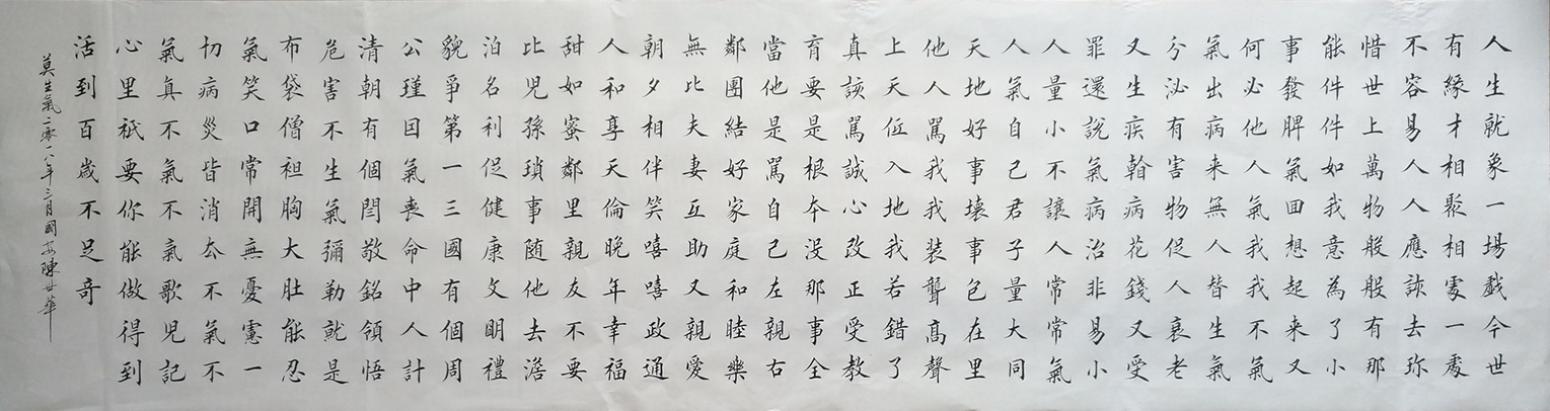 人生就象一場戲今世
有緣才相聚相處一處
不容易人人應該去珍
惜世上萬物般般有那
能件件如我意為了小
事發脾氣回想起来又
何必他人氣我我不氣
氣出病来無人替生氣
分泌有害物促人衰老
又生疾斡病花錢又受
罪還說氣病治非易小
人量小不讓人常常氣
人氣自己君子量大同
天地好事壊事包在里
他人罵我我装聾高聲
上天伍入地我若錯了
真該罵誠心改正受教
育要是根本没那事全
當他是罵自己左親右
鄰團結好家庭和睦樂
無比夫妻互助又親愛
朝夕相伴笑嘻嘻政通
人和享天倫晚年幸福
甜如蜜鄰里親友不要
比兒孫瑣事随他去澹
泊名利促健康文明禮
貌爭第一三國有個周
公瑾因氣喪命中人計
清朝有個閆敬銘領悟
危害不生氣彌勒就是
布袋僧袒胸大肚能忍
氣笑口常開無憂慮一
切病災皆消去不氣不
氣真不氣不氣歌兒記
心里祇要你能做得到
活到百歲不足奇
莫生氣二零一八年三月國安陳世華